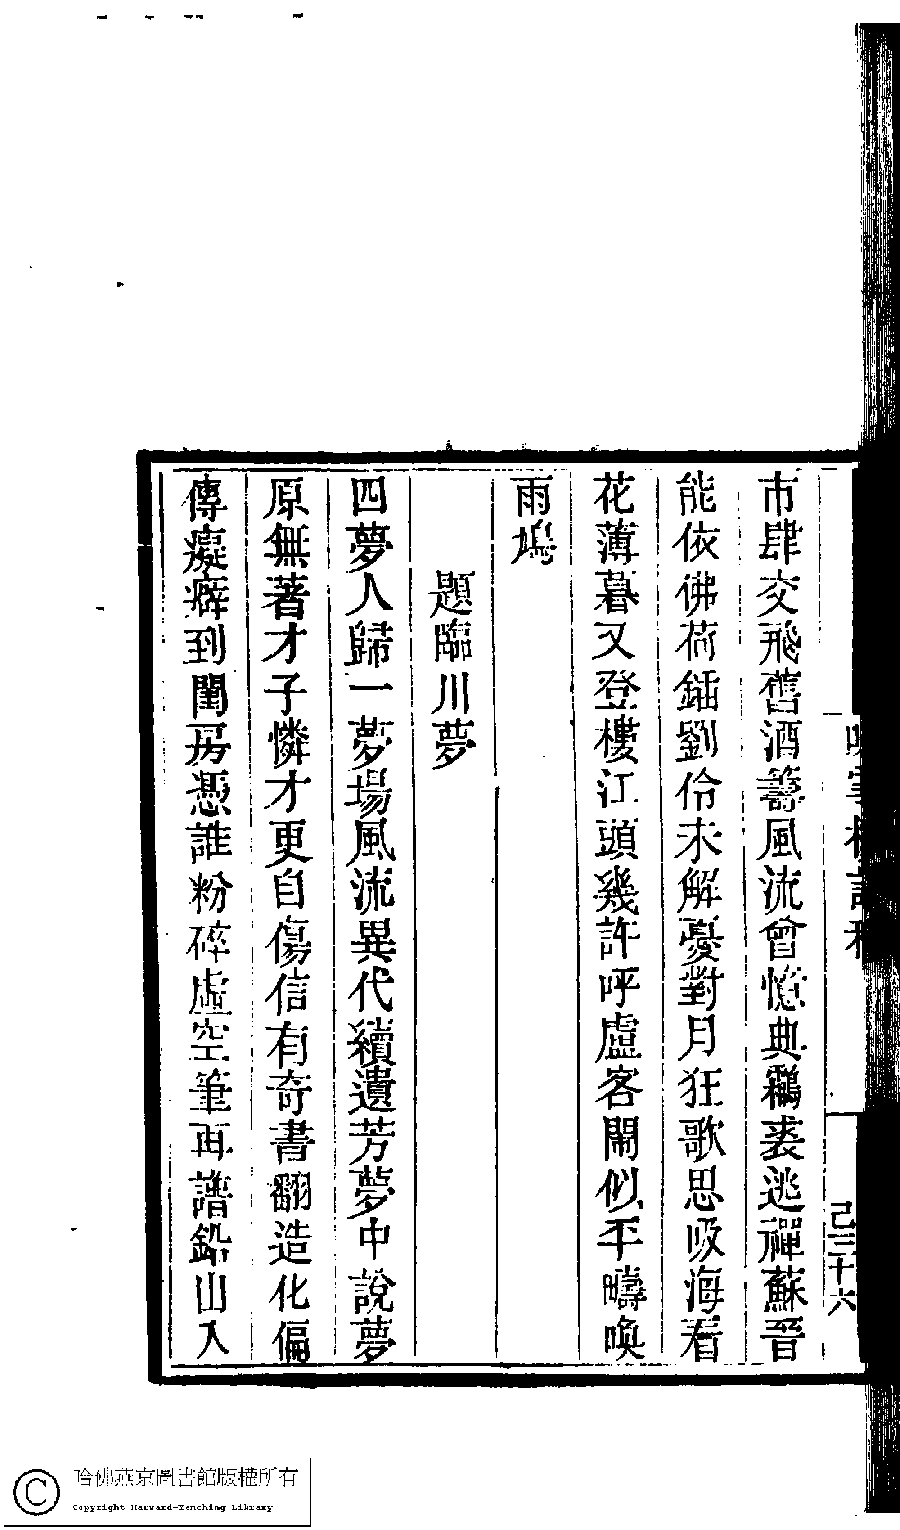 市肆交飛舊酒籌風流曾憶典鷫裘逃禪蘇晉
能依佛荷鍤劉伶未解憂對月狂歌思吸海看
花薄暮又登樓江頭幾許呼盧客鬧似平疇喚
雨鳩
題臨川夢
四夢人歸一夢場風流異代續遺芳夢中說夢
原無著才子憐才更自傷信有奇書翻造化偏
傳癡癖到閨房憑誰粉碎虛空筆再譜鉛山入
己三十六
哈佛燕京圖書館版權所有
Copyright Harvard-Yenching Library